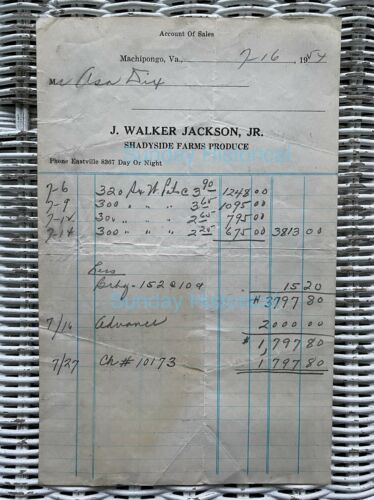 Account Of Sales
Machipongo, Va., 7-16, 1954
Mr Asa Dix
J. WALKER JACKSON, JR.
SHADYSIDE FARMS PRODUCE
Phone Eastville 8367 Day Or Night
Sunday Historical
7-6 320 W. @ 3 90 1248 00
7-9 300 " " " 3 65 1095 00
7-12 300 " " " 2 65 795 00
7-14 300 " " " 2 25 675 00 3813 00
Less
- 152 @ 10¢ 15 20
Sunday Historical
# 3797 80
7/16 Advance 2000 00
$ 1,797 80
7/27 Ch # 10173 1797 80